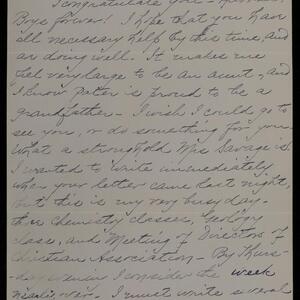 I congratulate you -
Boys forever! I hope that you have
all necessary help by this time, and
are doing well. It makes me
feel very large to be an aunt, and
I know Father is proud to be a
grandfather - I wish I could go to
see you, or do something for you.
What a stronghold Mrs Savage is.
I wanted to write immediately
when your letter came last night,
but this is my very busy day -
three chemistry classes, Geology
class, and Meeting of Directors of
Christian Association - By Thurs-
day evenin I consider the week
nearly over. I must write several